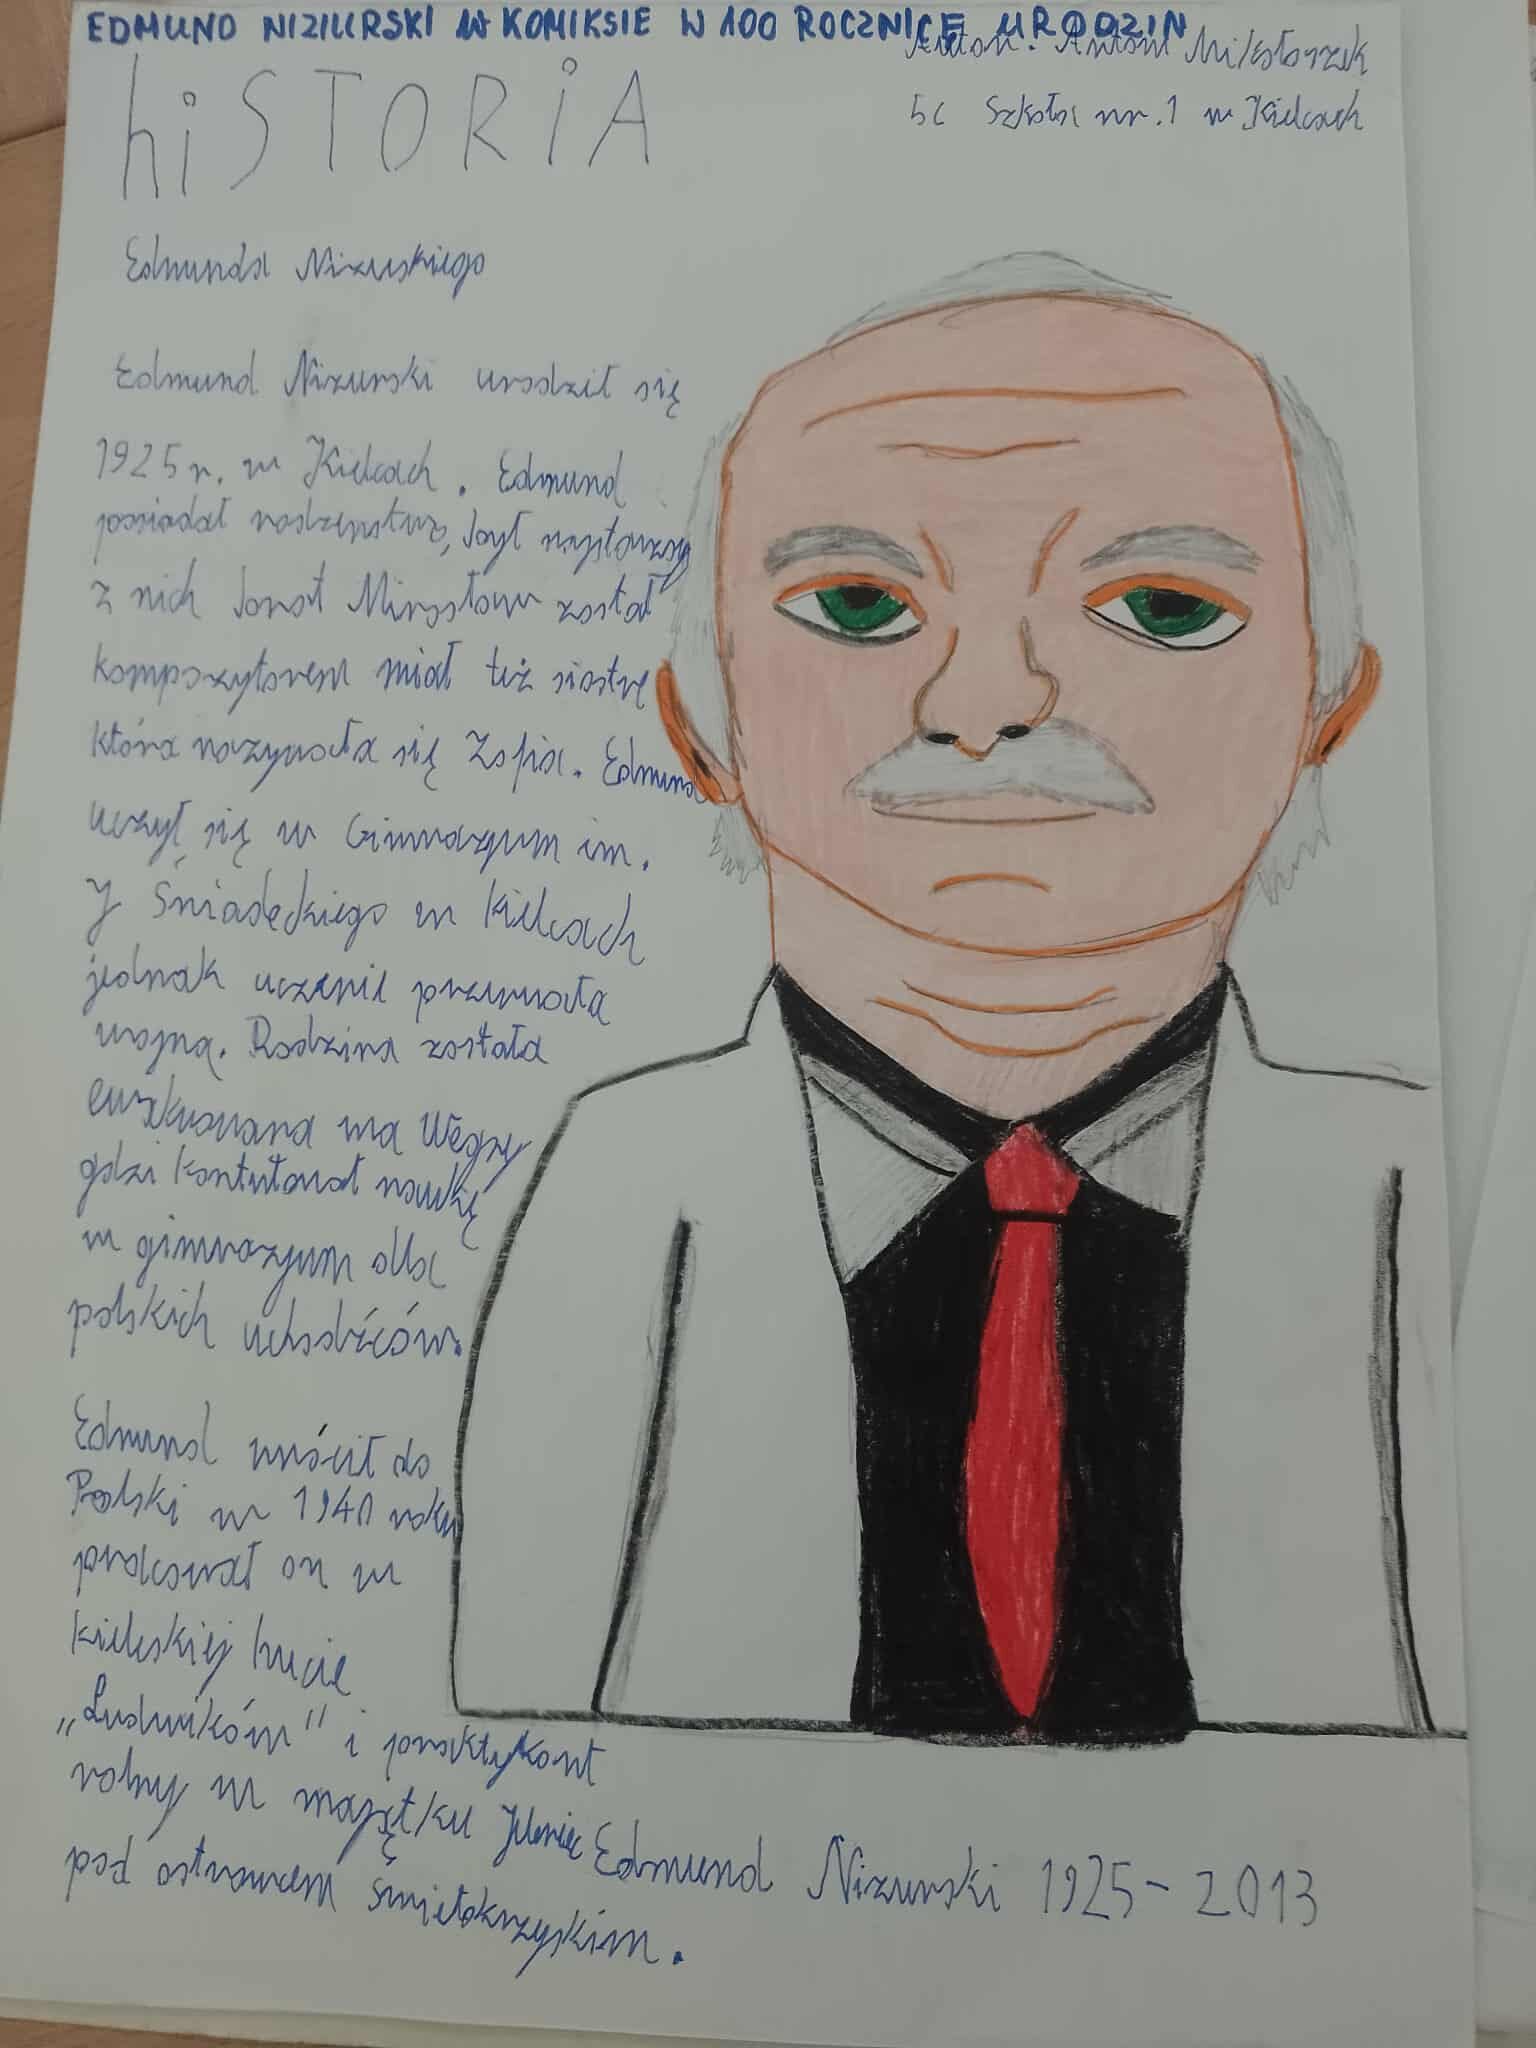 EDMUND NIZIURSKI W KOMIKSIE W 100 ROCZNICĘ URODZIN
Autor: Antoni
5c Szkoła nr.1 w Kielcach
hiSTORiA
Edmunda Nizuskiego
Edmund Nizurski urodził się
1925r. w Kielcach. Edmund
posiadał rodzeństwo, był najstarszy
z nich brat Mirosław został
kompozytorem miał też siostrę
która nazywała się Zofia. Edmund
uczył się w Gimnazjum im.
J Śniadeckiego w Kielcach
jednak uczenie przerwała
wojna. Rodzina została
ewakuowana na Węgry
gdzi kontutował naukę
w gimnazjum dla
polskich uchodźców.
Edmund wrócił do
Polski w 1940 roku
pracował on w
kieleskiej hucie
„Ludwików" i praktykant
rolny w majątku Jeleniec
pod ostrowcem świętokrzyskim.
Edmund Nizurski 1925-2013